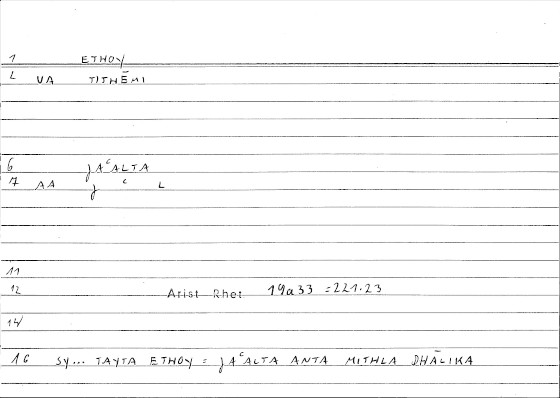 1 ETHOY
2 VA TITHĒMI
6 JAʿALTA
7 AA J ʿ L
11
12 Arist Rhet 19a33 =221.23
14
16 SY... TAYTA ETHOY = JAʿALTA ANTA MITHLA DHĀLIKA